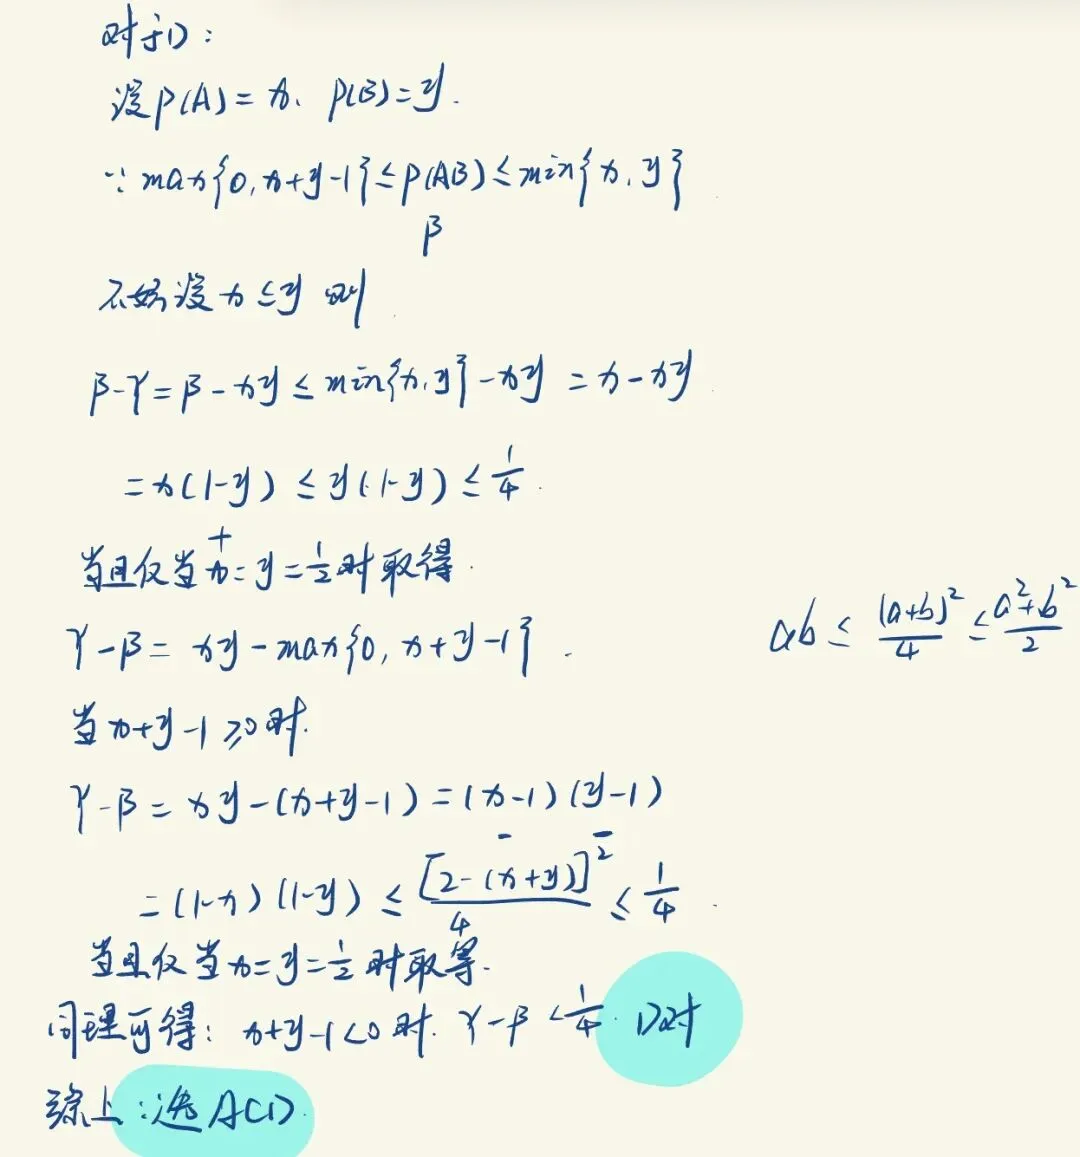 对于D:
设P(A)=x、P(B)=y.
∵max{0,x+y-1}≤P(AB)≤min{x,y}
β
不妨设x≤y 则
β-γ=β-xy≤min{x,y}-xy=x-xy
=x(1-y)≤y(1-y)≤1/4.
当且仅当x=y=1/2时取得.
γ-β=xy-max{0,x+y-1}.
ab≤(a+b)²/4≤(a²+b²)/2
当x+y-1≥0时.
γ-β=xy-(x+y-1)=(x-1)(y-1)
=(1-x)(1-y)≤[2-(x+y)]²/4≤1/4.
当且仅当x=y=1/2时取等.
同理可得:x+y-1<0时.γ-β<1/4.D对
综上:选ACD.